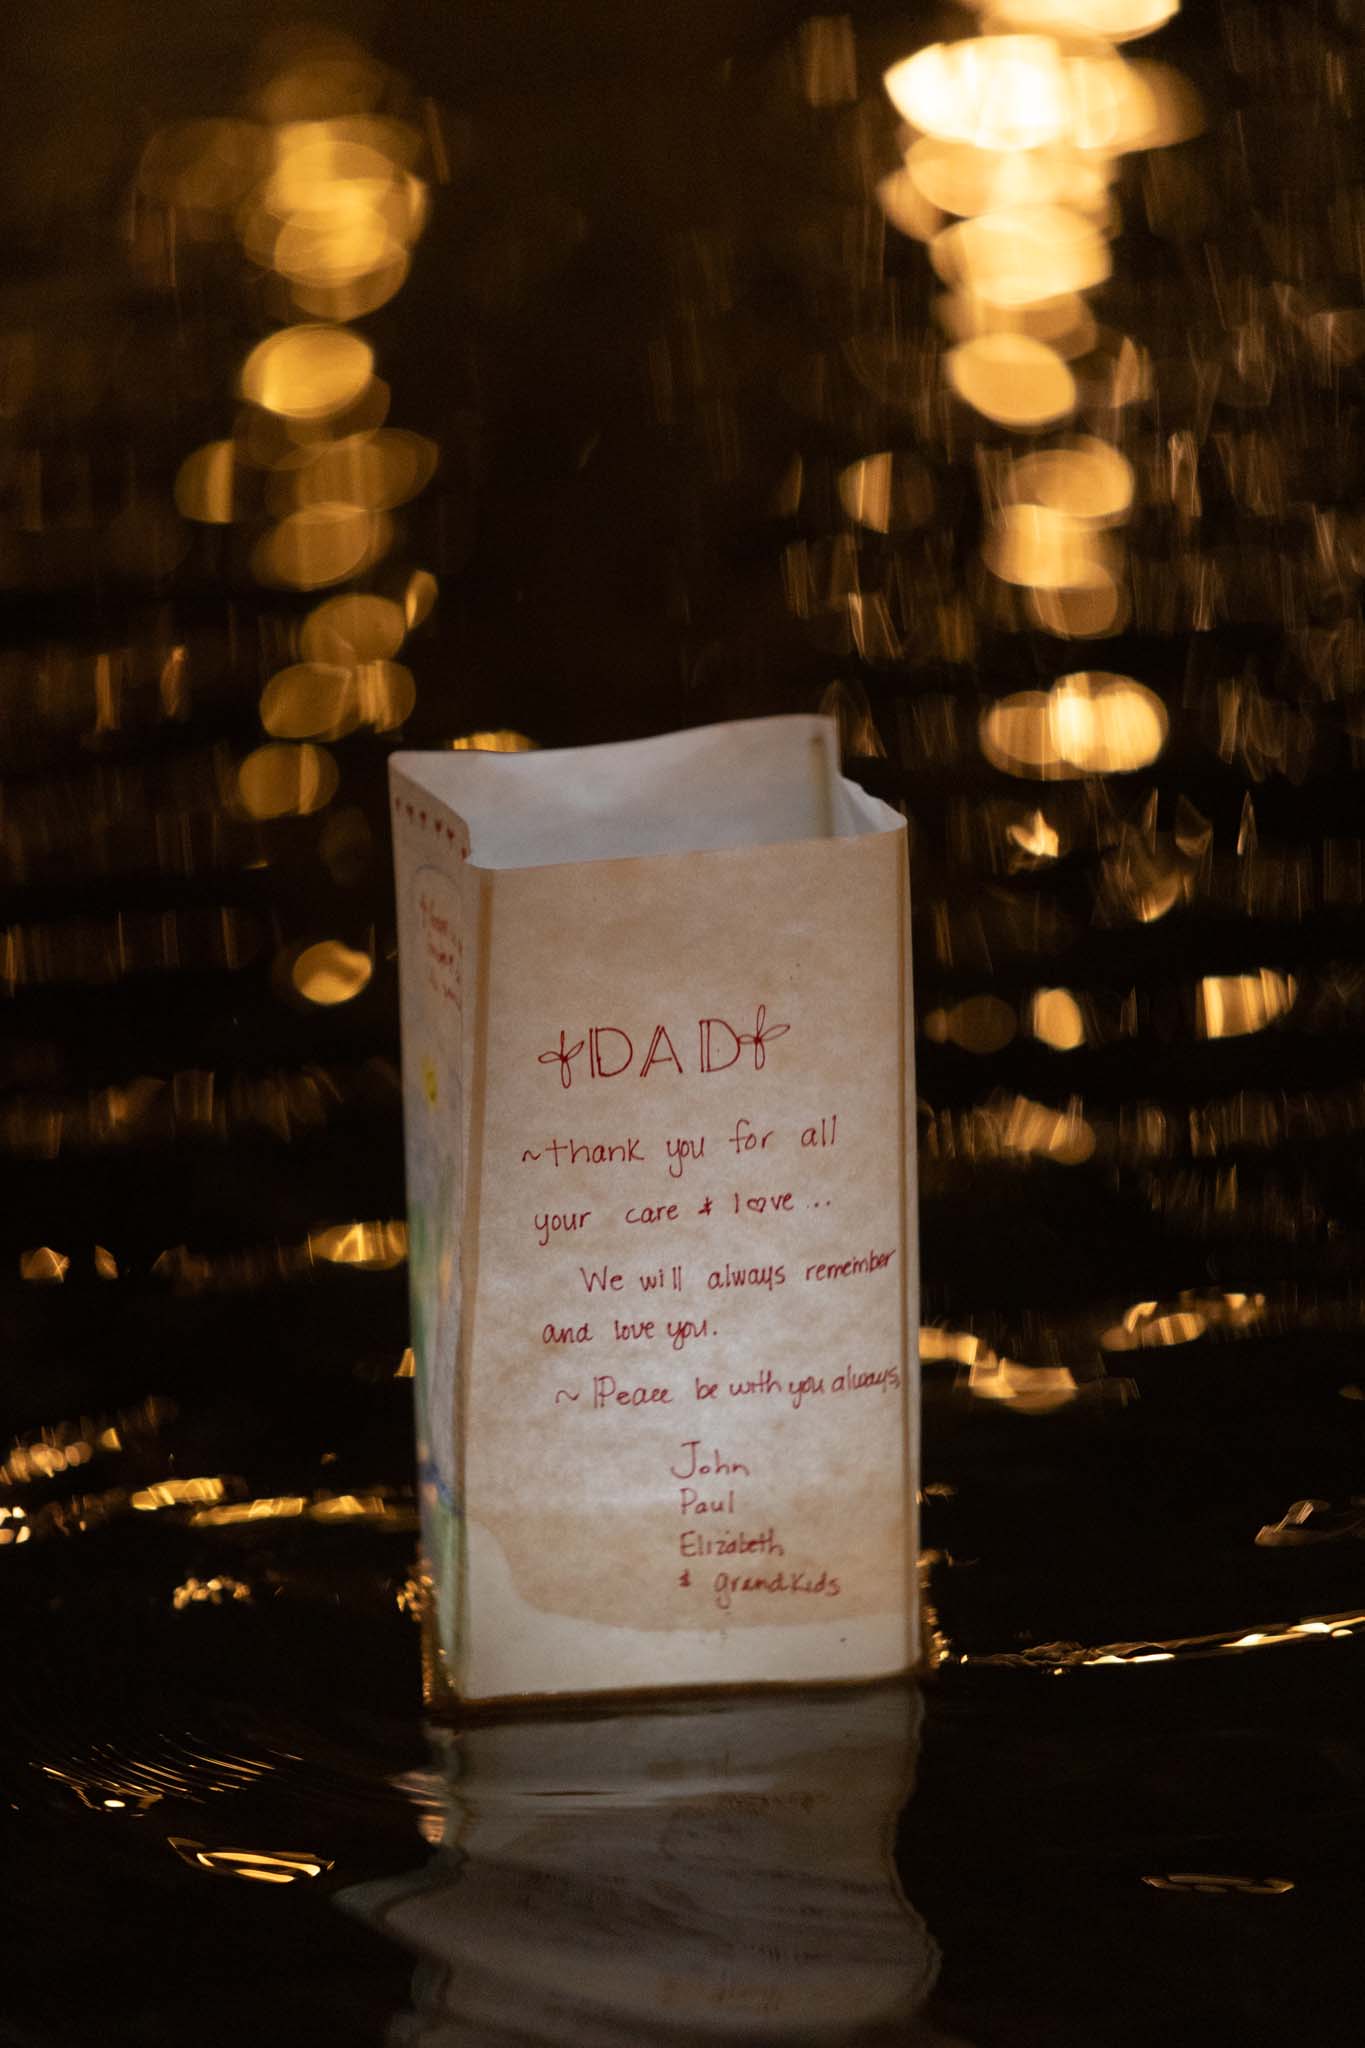 DAD
~thank you for all
your care & love...
We will always remember
and love you.
~ Peace be with you always,
John
Paul
Elizabeth
& grandkids